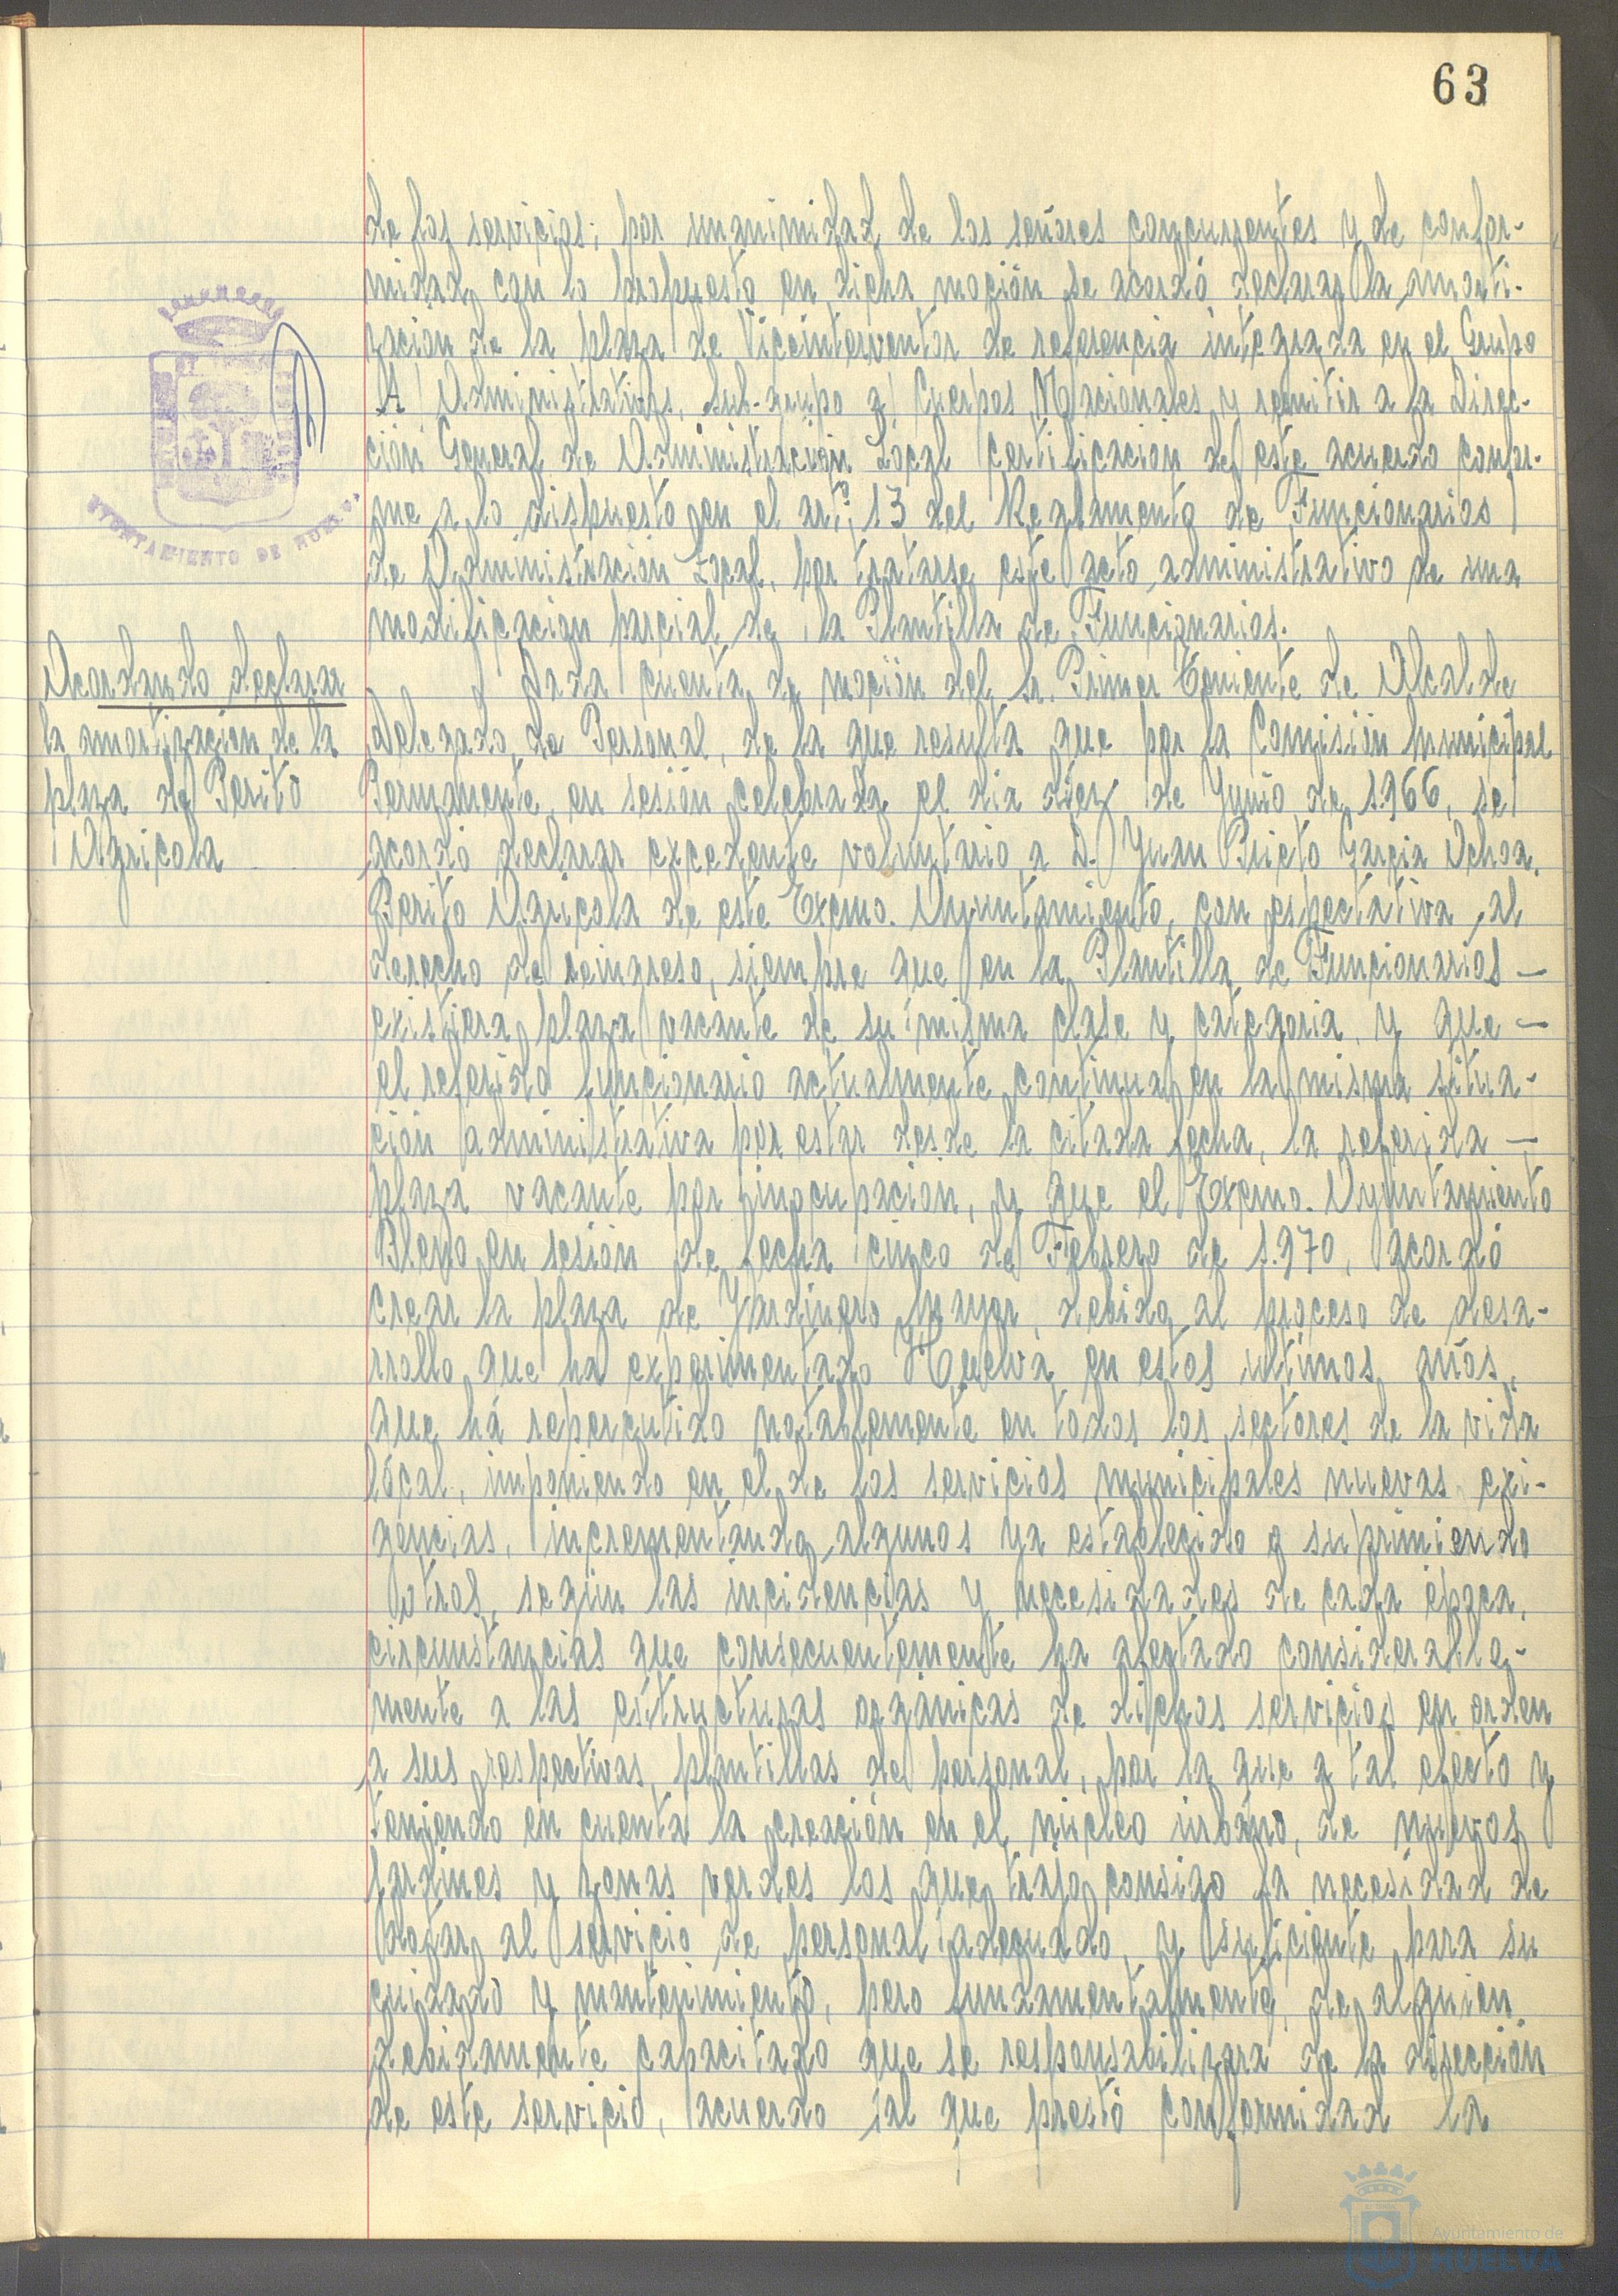 63
de los servicios; por unanimidad de los señores concurrentes y de confor-
midad con lo propuesto en dicha moción se acordó declarar la amorti-
zación de la plaza de Viceinterventor de referencia integrada en el Grupo
A) Administrativos, sub-grupo a) Cuerpos Nacionales y remitir a la Direc-
ción General de Administración Local certificación de este acuerdo confor-
me a lo dispuesto en el artº. 13 del Reglamento de Funcionarios
de Administración Local, por tratarse este acto administrativo de una
modificación parcial de la Plantilla de Funcionarios.
AYUNTAMIENTO DE HUELVA
Acordando declarar
la amortización de la
plaza de Perito
Agricola
Dada cuenta de moción del Sr. Primer Teniente de Alcalde
Delegado de Personal, de la que resulta que por la Comisión Municipal
Permanente, en sesión celebrada el dia diez de Junio de 1.966, se
acordó declarar excedente voluntario a D. Juan Prieto Garcia Ochoa,
Perito Agricola de este Excmo. Ayuntamiento, con espectativa al
derecho de reingreso, siempre que en la Plantilla de Funcionarios –
existiera plaza vacante de su misma clase y categoria, y que –
el referido funcionario actualmente continua en la misma situa-
ción administrativa por estar desde la citada fecha, la referida –
plaza vacante por inocupación, y que el Excmo. Ayuntamiento
Pleno en sesión de fecha cinco de Febrero de 1.970, acordó
crear la plaza de Jardinero Mayor, debido al proceso de desa-
rrollo que ha experimentado Huelva en estos ultimos años,
que há repercutido notablemente en todos los sectores de la vida
local, imponiendo en el de los servicios municipales nuevas exi-
gencias, incrementando algunos ya establecido o suprimiendo
otros, según las incidencias y necesidades de cada época,
circunstancias que consecuentemente ha afectado considerable-
mente a las estructuras orgánicas de dichos servicios en orden
a sus respectivas plantillas de personal, por la que a tal efecto y
teniendo en cuenta la creación en el núcleo urbano, de nuevos
jardines y zonas verdes los que trajo consigo la necesidad de
dotar al servicio de personal adecuado y suficiente para su
cuidado y mantenimiento, pero fundamentalmente, de alguien
debidamente capacitado que se responsabilizara de la dirección
de este servicio, acuerdo al que prestó conformidad la
Ayuntamiento de
HUELVA